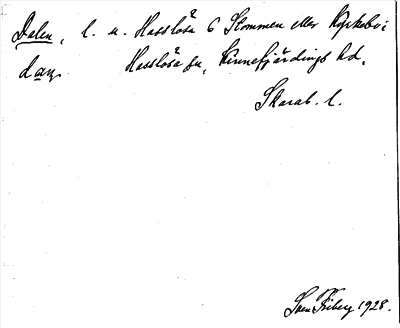 Dalen, l. u. Hasslösa 6 Stommen eller Kyrkebo:
dạn. Hasslösa sn, Kinnefjärdings hd.
Skarab. l.
Sven Friberg 1928.